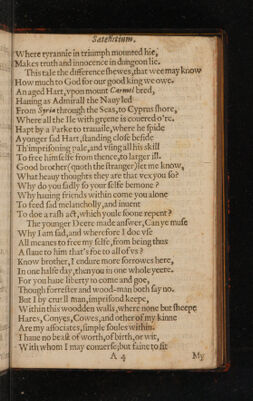 Satchitium.
Where tyrannie in triumph mounted hie,
Makes truth and innocence in dungeon lie.
This tale the difference shewes, that wee may know
How much to God for our good king we owe.
An aged Hart, vpon mount Carmel bred,
Hauing as Admirall the Nauy led
From Syria through the Seas, to Cyprus shore,
Where all the Ile with greene is couered o're.
Hapt by a Parke to trauaile, where he spide
A yonger sad Hart, standing close beside
Th'imprisoning pale, and vsing all his skill
To free himselfe from thence, to larger ill.
Good brother (quoth the stranger) let me know,
What heauy thoughts they are that vex you so?
Why do you sadly so your selfe bemone?
Why hauing friends within come you alone
To feed sad melancholly, and inuent
To doe a rash act, which youle soone repent?
The younger Deere made answer, Can ye muse
Why I am sad, and wherefore I doe vse
All meanes to free my selfe, from being thus
A slaue to him that's foe to all of vs?
Know brother, I endure more sorrowes here,
In one halfe day, then you in one whole yeere.
For you haue liberty to come and goe,
Though forrester and wood-man both say no.
But I by cruell man, imprisond keepe,
Within this woodden walls, where none but sheepe
Hares, Conyes, Cowes, and other of my kinne
Are my associates, simple soules within.
I haue no beast of worth, of birth, or wit,
With whom I may conuerse, but faine to sit
A 4 My